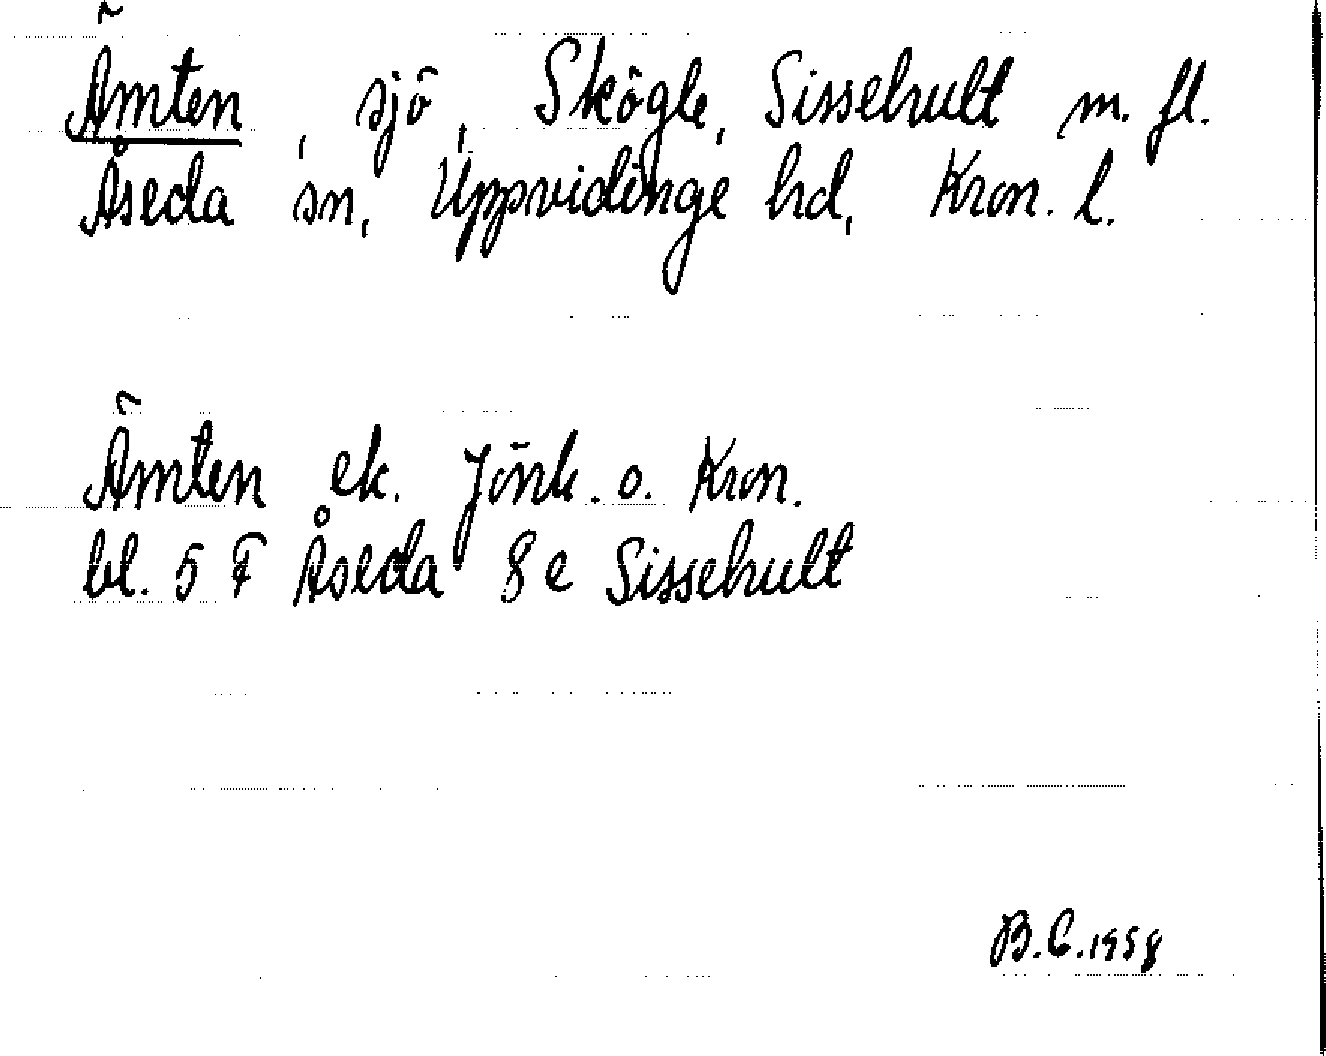 Ämten, sjö, Skögle, Sissehult m. fl.
Åseda sn, Uppvidinge hd, Kron. l.
Ämten ek. Jönk. o. Kron.
bl. 5 F Åseda 8 e Sissehult
B.C. 1958